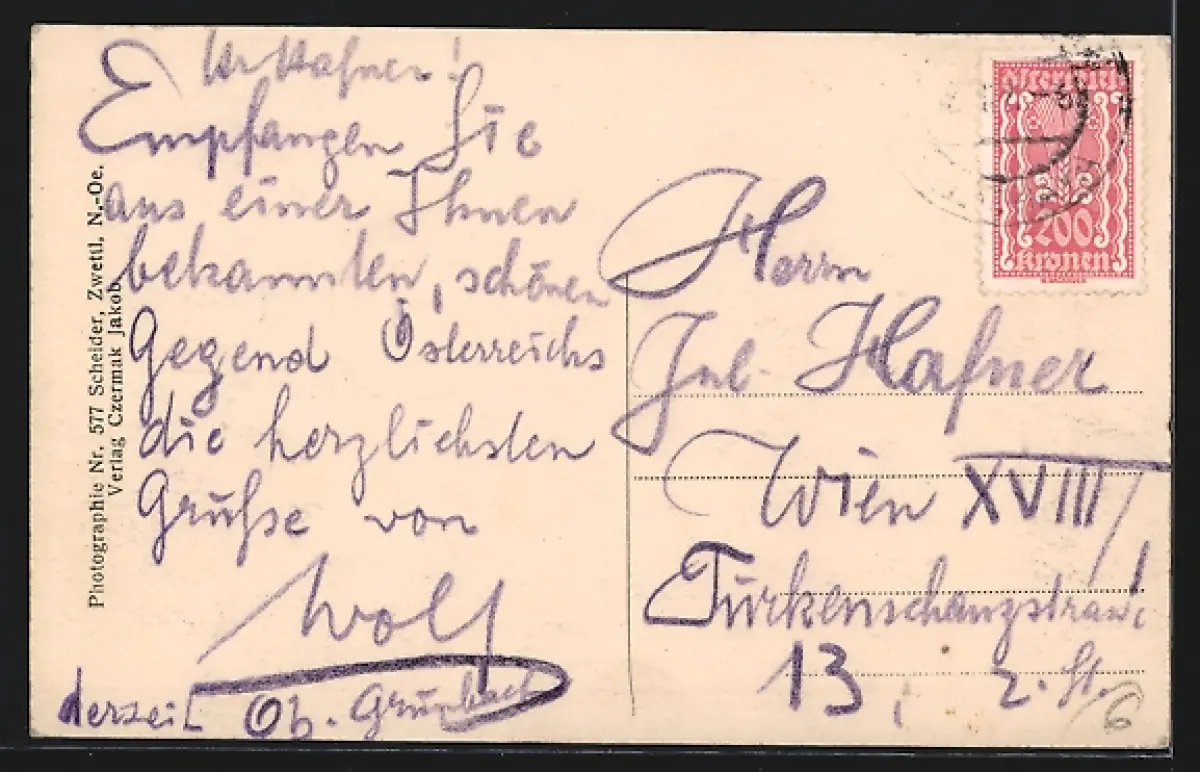 Hr Hafner!
Empfangen Sie
aus einer Ihnen
bekannten, schönen
Gegend Österreichs
die herzlichsten
Grüße von
Wolf
derzeit Ob. Grünbach
Photographie Nr. 577 Scheider, Zwettl, N.-Oe.
Verlag Czermak Jakob.
Österreich
200
Kronen
Herrn
Jul. Hafner
Wien XVIII/
Türkenschanzstrasse
13, 2. St.
6